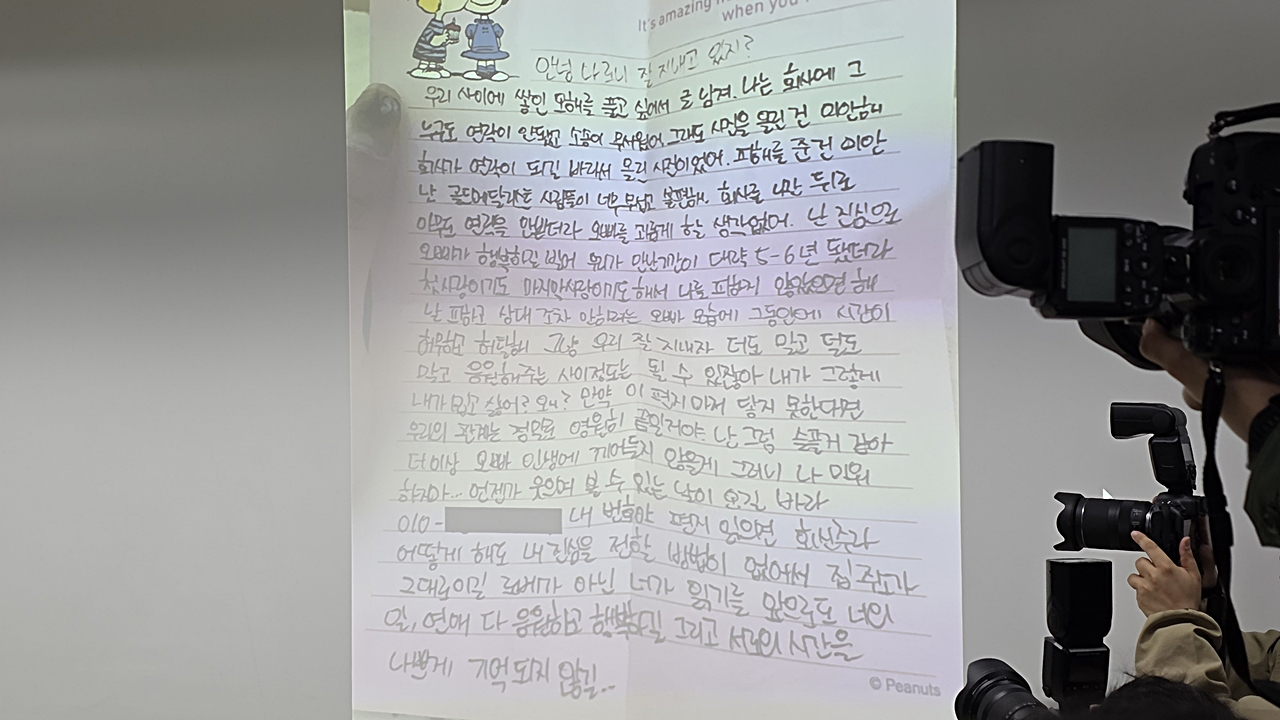 It's amazing
when you
안녕 나 잘 지내고 있지?
우리 사이에 쌓인 오해를 풀고 싶어서 글 남겨. 나는 회사에 그
누구도 연락이 안됐고 소송이 무서웠어. 그래도 사진을 올린 건 미안해
회사가 연락이 되길 바라서 올린 사진이었어. 피해를 준건 미안
난 골드메달리스트 사람들이 너무 무섭고 불편해. 회사를 나간 뒤로
아무도 연락을 안받더라 오빠를 괴롭게 하는 생각없어. 난 진심으로
오빠가 행복하길 빌어 우리가 만난기간이 대략 5-6년 됐더라
첫사랑이기도 마지막사랑이기도해서 나를 피하지 않았으면 해
날 피하고 상대 조차 안하려는 오빠 모습에 그동안에 시간이
허무하고 허탈해 그냥 우리 잘 지내자 더도 말고 덜도
말고 응원해주는 사이정도는 될 수 있잖아 내가 그렇게
내가 밉고 싫어? 왜? 만약 이 편지마저 닿지 못한다면
우리의 관계는 정말로 영원히 끝일거야. 난 그럼 슬플거 같아
더이상 오빠 인생에 끼어들지 않을게 그러니 나 미워
하지마... 언젠가 웃으며 볼 수 있는 날이 오길 바라
010- 내 번호야 편지 읽으면 회신주라
어떻게 해도 내 진심을 전할 방법이 없어서 집주소가
그대로이길 로버가 아닌 너가 읽기를 앞으로도 너의
일, 연애 다 응원하고 행복하길 그리고 서로의 시간을
나쁘게 기억되지 않길..
© Peanuts